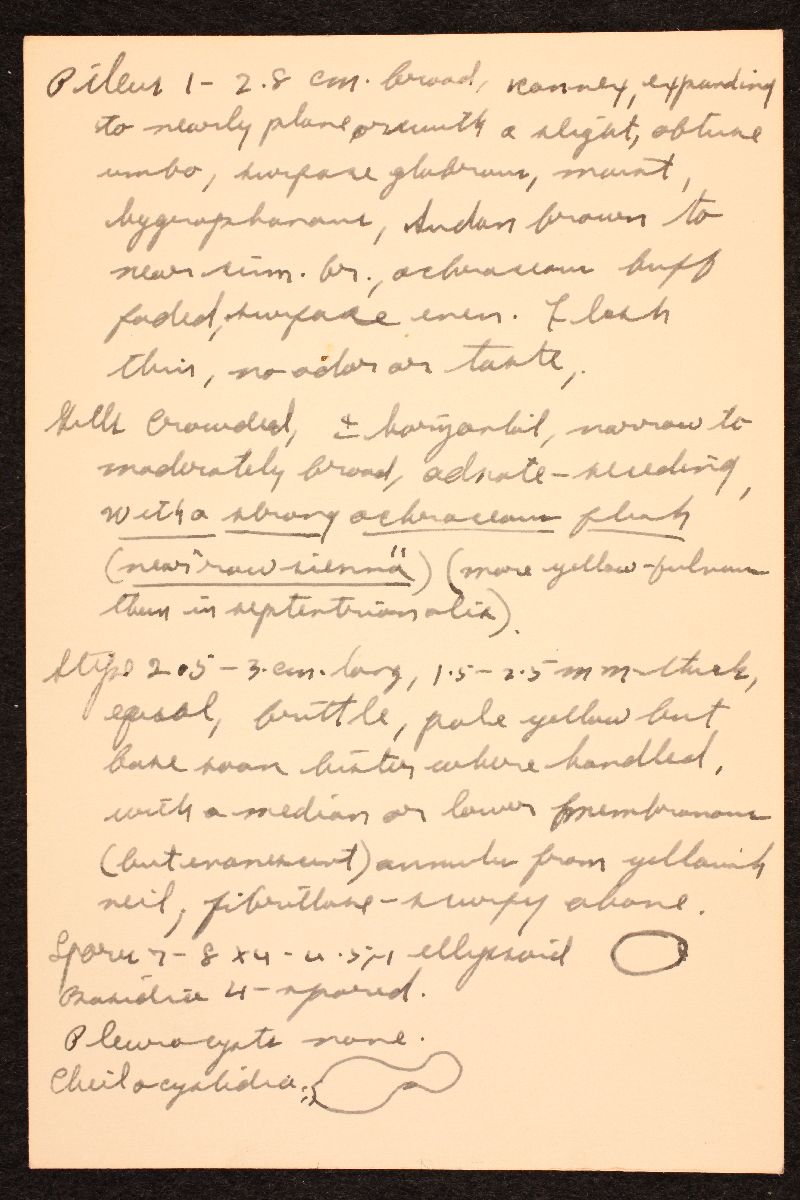 Pileus 1 - 2.8 cm. broad, convex, expanding
to nearly plane or with a slight, obtuse
umbo, surface glabrous, moist,
hygrophanous, Sudan brown to
near cinn. br., ochraceous buff
faded, surface even. Flesh
thin, no odor or taste,.
Gills crowded, ± horizontal, narrow to
moderately broad, adnate-seceding,
with a strong ochraceous flush
(near "raw sienna") (more yellow-fulvous
than in septentrionalis).
Stipe 2.5 - 3. cm. long, 1.5 - 2.5 mm thick,
equal, brittle, pale yellow but
base soon bister where handled,
with a median or lower membranous
(but evanescent) annulus from yellowish
veil, fibrillose-scurfy above.
Spores 7 - 8 x 4 - 4.5 µ ellipsoid
Basidia 4-spored.
Pleurocysts none.
Cheilocystidia